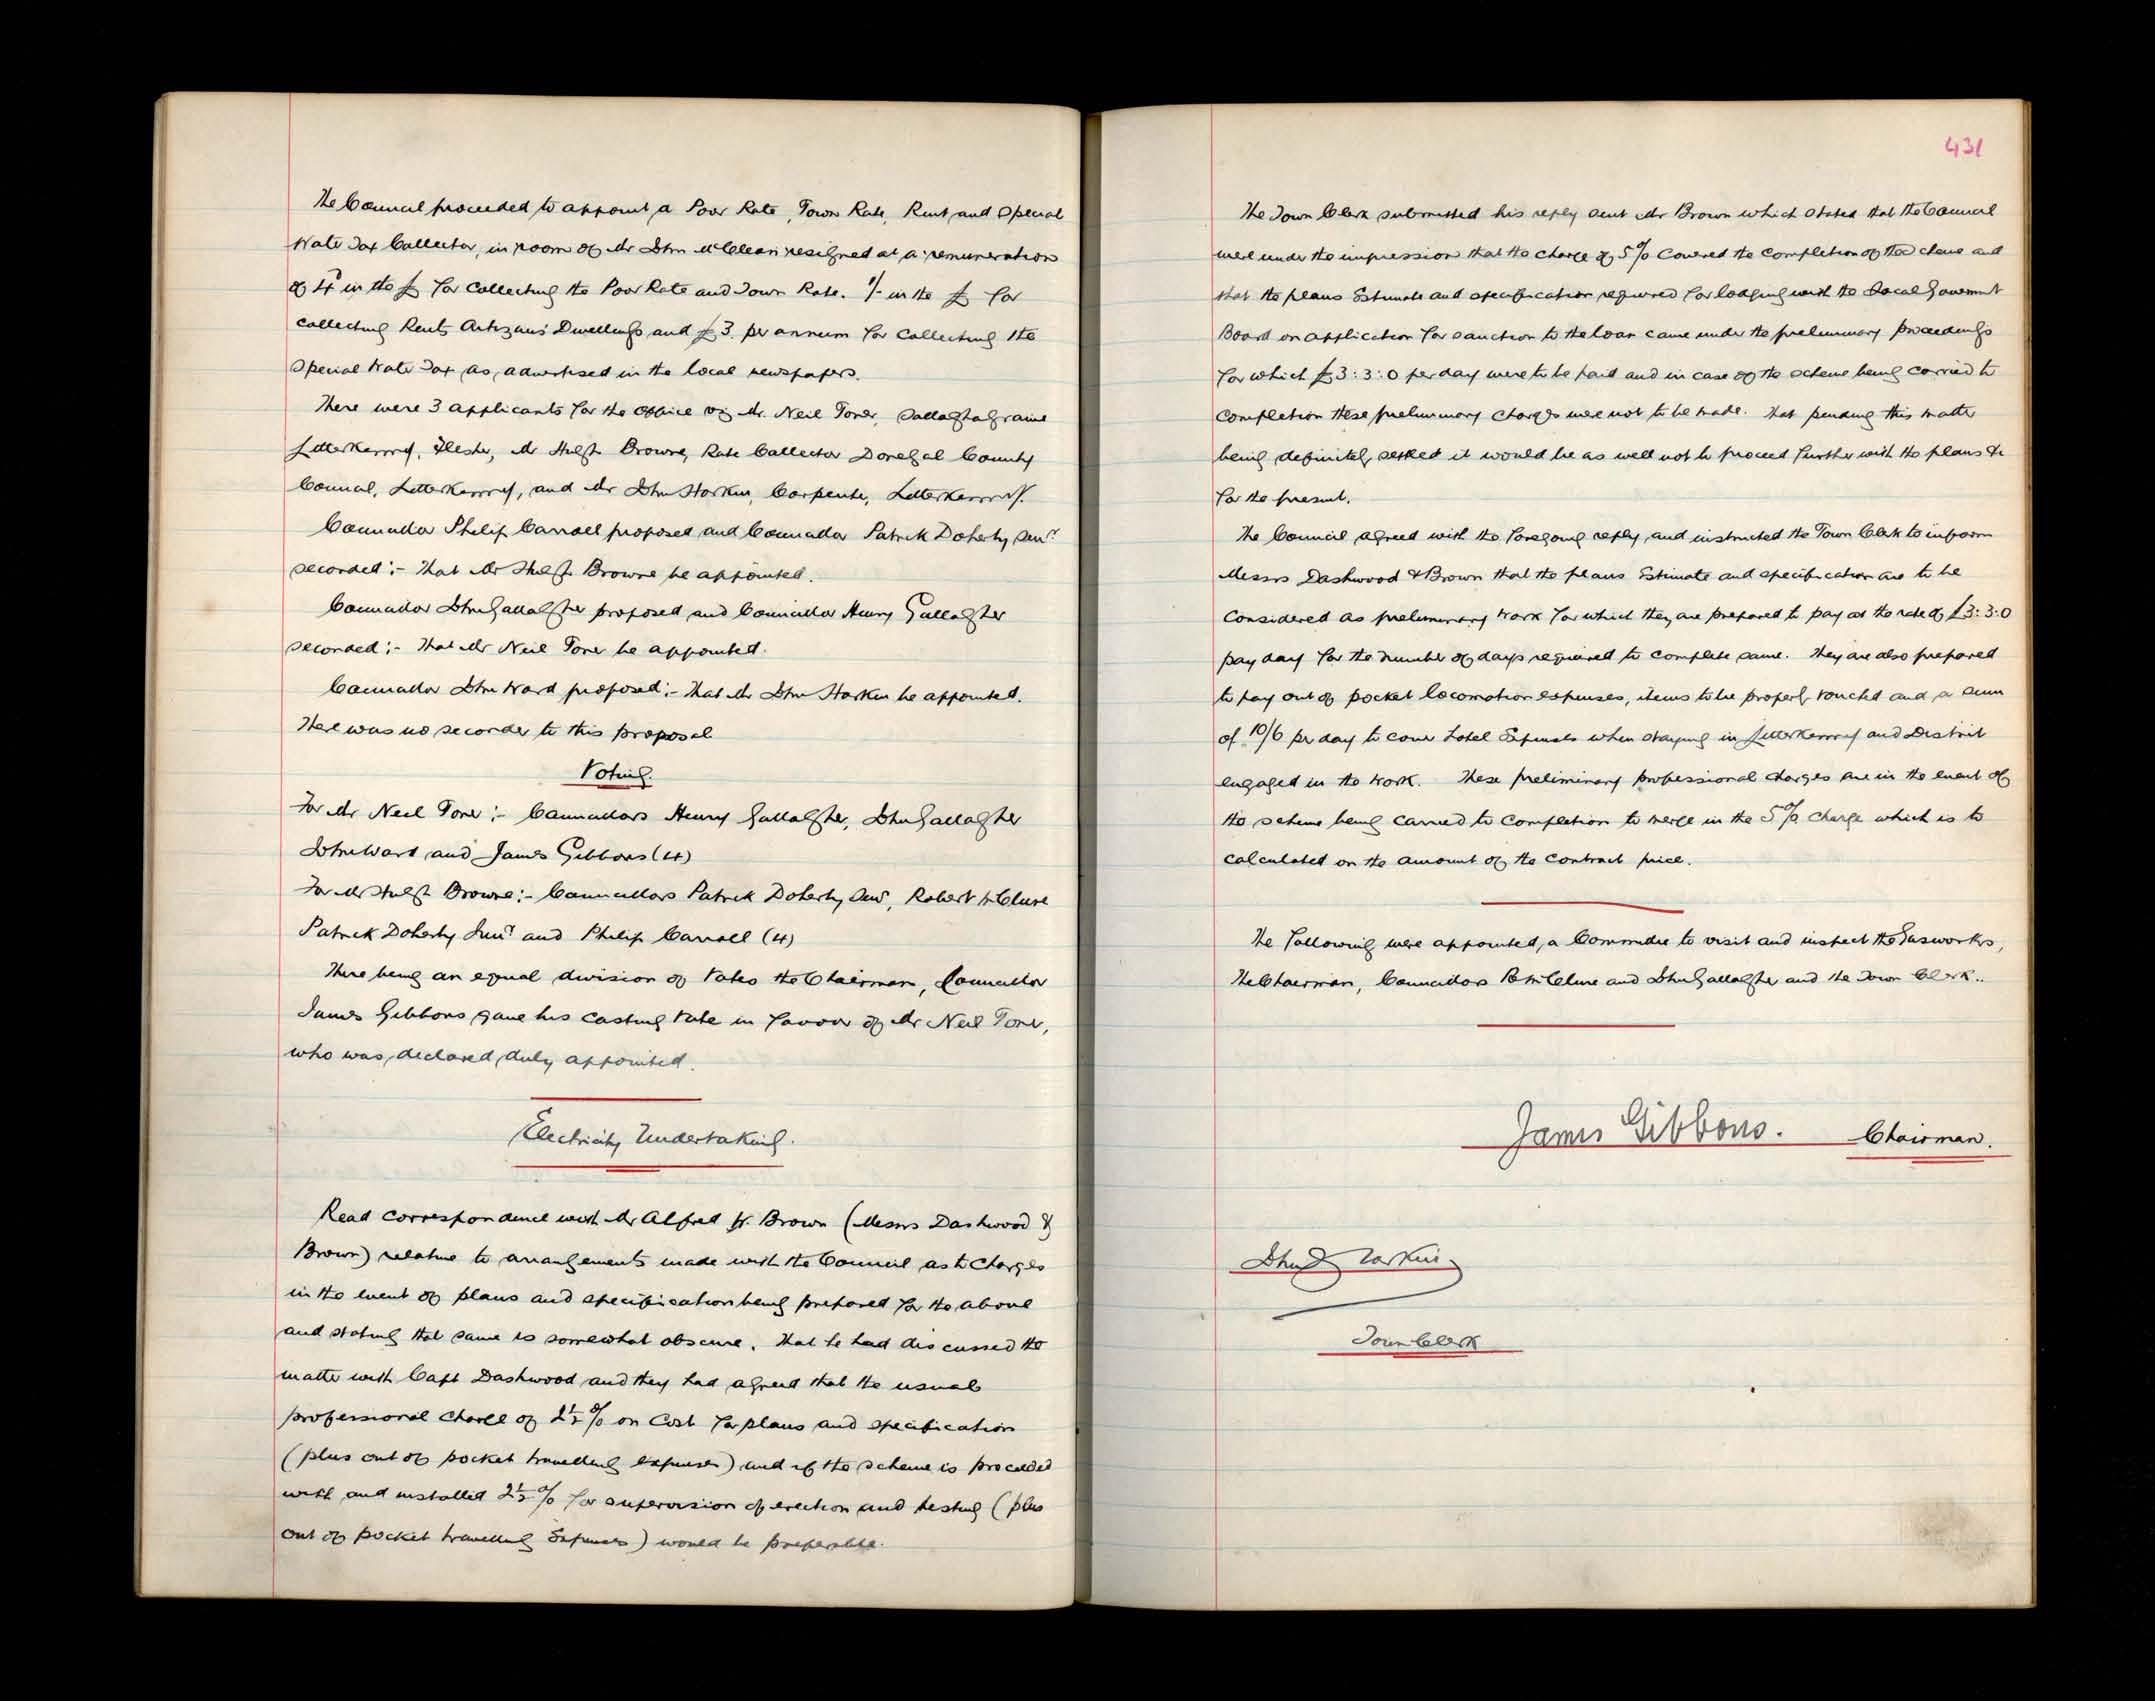 The Council proceeded to appoint a Poor Rate, Town Rate, Rent, and Special
Water Tax Collector, in room of Mr John McClean resigned at a remuneration
of 4d in the £ for Collecting the Poor Rate and Town Rate. 1/- in the £ for
collecting Rents Artizans' Dwellings and £3. per annum for Collecting the
Special Water Tax, as, advertised in the local newspapers.
There were 3 applicants for the office viz Mr. Neil Toner,
Letterkenny, Mr Hugh Browne, Rate Collector Donegal County
Council, Letterkenny, and Mr John Harkin, Carpenter, Letterkenny.
Councillor Philip Carroll proposed and Councillor Patrick Doherty Senr
seconded:- That Mr Hugh Browne be appointed.
Councillor John Gallagher proposed and Councillor Henry Gallagher
seconded:- That Mr Neil Toner be appointed.
Councillor John Ward proposed:- That Mr John Harkin be appointed.
There was no seconder to this proposal
Voting.
For Mr Neil Toner:- Councillors Henry Gallagher, John Gallagher
John Ward and James Gibbons (4)
For Mr Hugh Browne:- Councillors Patrick Doherty Senr, Robert McClure
Patrick Doherty Junr and Philip Carroll (4)
There being an equal division of Votes the Chairman, Councillor
James Gibbons gave his Casting Vote in favour of Mr Neil Toner,
who was, declared, duly appointed.
Electricity Undertaking.
Read correspondence with Mr Alfred W. Brown (Messrs Dashwood &
Brown) relative to arrangements made with the Council as to Charges
in the event of plans and specification being prepared for the above
and stating that same is somewhat obscure. That he had discussed the
matter with Capt Dashwood and they had agreed that the usual
professional charge of 2½% on Cost for plans and specification
(plus out of pocket travelling expenses) and if the scheme is proceeded
with and installed 2½% for supervision of erection and testing (plus
out of pocket travelling Expenses) would be preferable.
431
The Town Clerk submitted his reply sent Mr Brown which stated that the Council
were under the impression that the charge of 5% Covered the Completion of the scheme and
that the plans Estimate and specification required for lodging with the Local Government
Board on application for sanction to the loan came under the preliminary proceedings
for which £3:3:0 per day were to be paid and in case of the scheme being carried to
Completion these preliminary charges were not to be made. That pending this matter
being definitely settled it would be as well not to proceed further with the plans &c
for the present.
The Council agreed with the foregoing reply, and instructed the Town Clerk to inform
Messrs Dashwood & Brown that the plans Estimate and specification are to be
Considered as preliminary work for which they are prepared to pay at the rate of £3:3:0
pay day for the number of days required to complete same. They are also prepared
to pay out of pocket locomotion expenses, items to be properly vouched and a sum
of 10/6 per day to cover Hotel Expenses when staying in Letterkenny and District
engaged in the work. These preliminary professional charges are in the event of
the scheme being carried to Completion to merge in the 5% charge which is to
calculated on the amount of the Contract price.
The following were appointed, a Committee to visit and inspect the Gasworks,
The Chairman, Councillors McClure and John Gallagher and the Town Clerk..
James Gibbons. Chairman.
Town Clerk